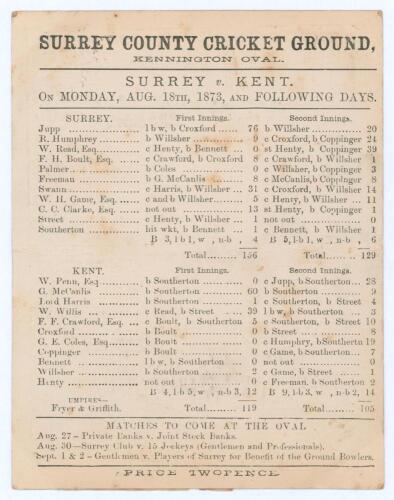 SURREY COUNTY CRICKET GROUND,
KENNINGTON OVAL.
SURREY v. KENT.
ON MONDAY, AUG. 18TH, 1873, AND FOLLOWING DAYS.
SURREY. First Innings. Second Innings.
Jupp lbw, b Croxford 76 b Willsher 20
R. Humphrey b Willsher 9 c Croxford, b Coppinger 24
W. Read, Esq. c Henty, b Bennett 0 st Henty, b Coppinger 39
F. H. Boult, Esq. c Crawford, b Croxford 8 c Crawford, b Willsher 1
Palmer b Coles 0 c Willsher, b Coppinger 3
Freeman b G. McCanlis 8 c McCanlis, b Coppinger 8
Swann c Harris, b Willsher 31 c Croxford, b Willsher 14
W. H. Game, Esq. c and b Willsher 5 c Henty, b Willsher 11
C. C. Clarke, Esq. not out 13 st Henty, b Coppinger 1
Street c Henty, b Willsher 1 not out 0
Southerton hit wkt, b Bennett 1 c Bennett, b Willsher 1
B 3, l-b 1, w , n-b , 4 B 5, l-b 1, w , n-b , 6
Total 156 Total 129
KENT. First Innings. Second Innings.
W. Penn, Esq b Southerton 0 c Jupp, b Southerton 28
G. McCanlis b Southerton 60 b Southerton 9
Lord Harris b Southerton 1 c Southerton, b Street 4
W. Willis c Read, b Street 39 l b w, b Southerton 3
F. F. Crawford, Esq. c Boult, b Southerton 5 c Street, b Southerton 10
Croxford b Boult 0 b Street 8
G. E. Coles, Esq. b Boult 0 c Humphry, b Southerton 19
Coppinger b Boult 0 c Game, b Southerton 7
Bennett l b w, b Southerton 0 not out 0
Willsher b Southerton 2 c Game, b Street 1
Henty not out 0 c Freeman, b Southerton 2
B 4, l-b 5, w , n-b 3, 12 B 9, l-b 3, w , n-b 2, 14
UMPIRES—
Fryer & Griffith. Total 119 Total 105
MATCHES TO COME AT THE OVAL
Aug. 27 – Private Banks v. Joint Stock Banks.
Aug. 30—Surrey Club v. 15 Jockeys (Gentlemen and Professionals).
Sept. 1 & 2 – Gentlemen v. Players of Surrey for Benefit of the Ground Bowlers.
PRICE TWOPENCE